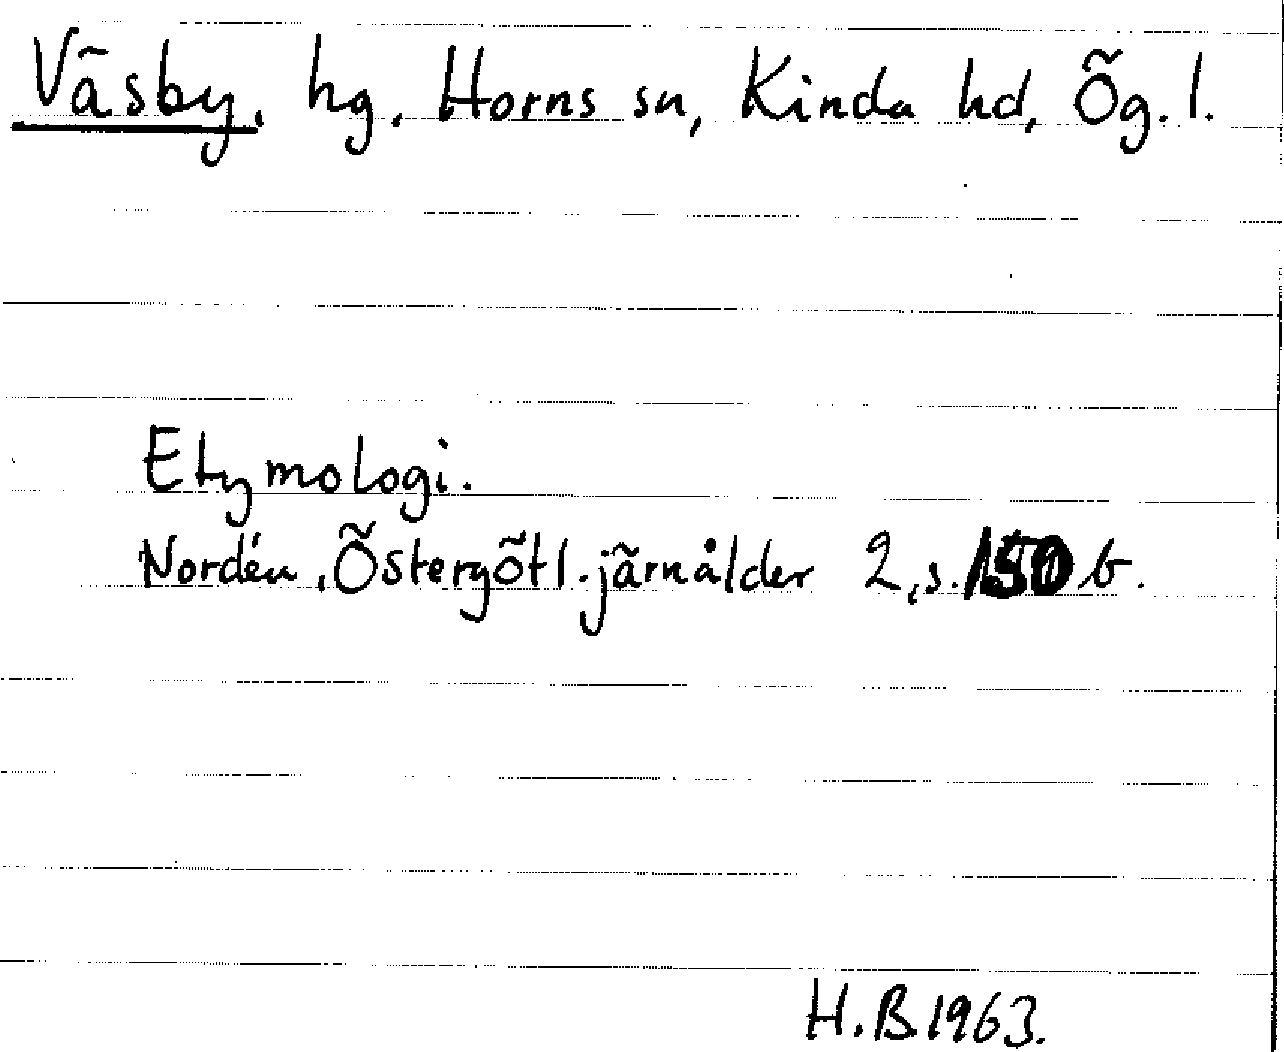 Väsby, hg, Horns sn, Kinda hd, Ög. l.
Etymologi.
Nordén, Östergötl. järnålder 2, s. 150 b.
H.B. 1963.